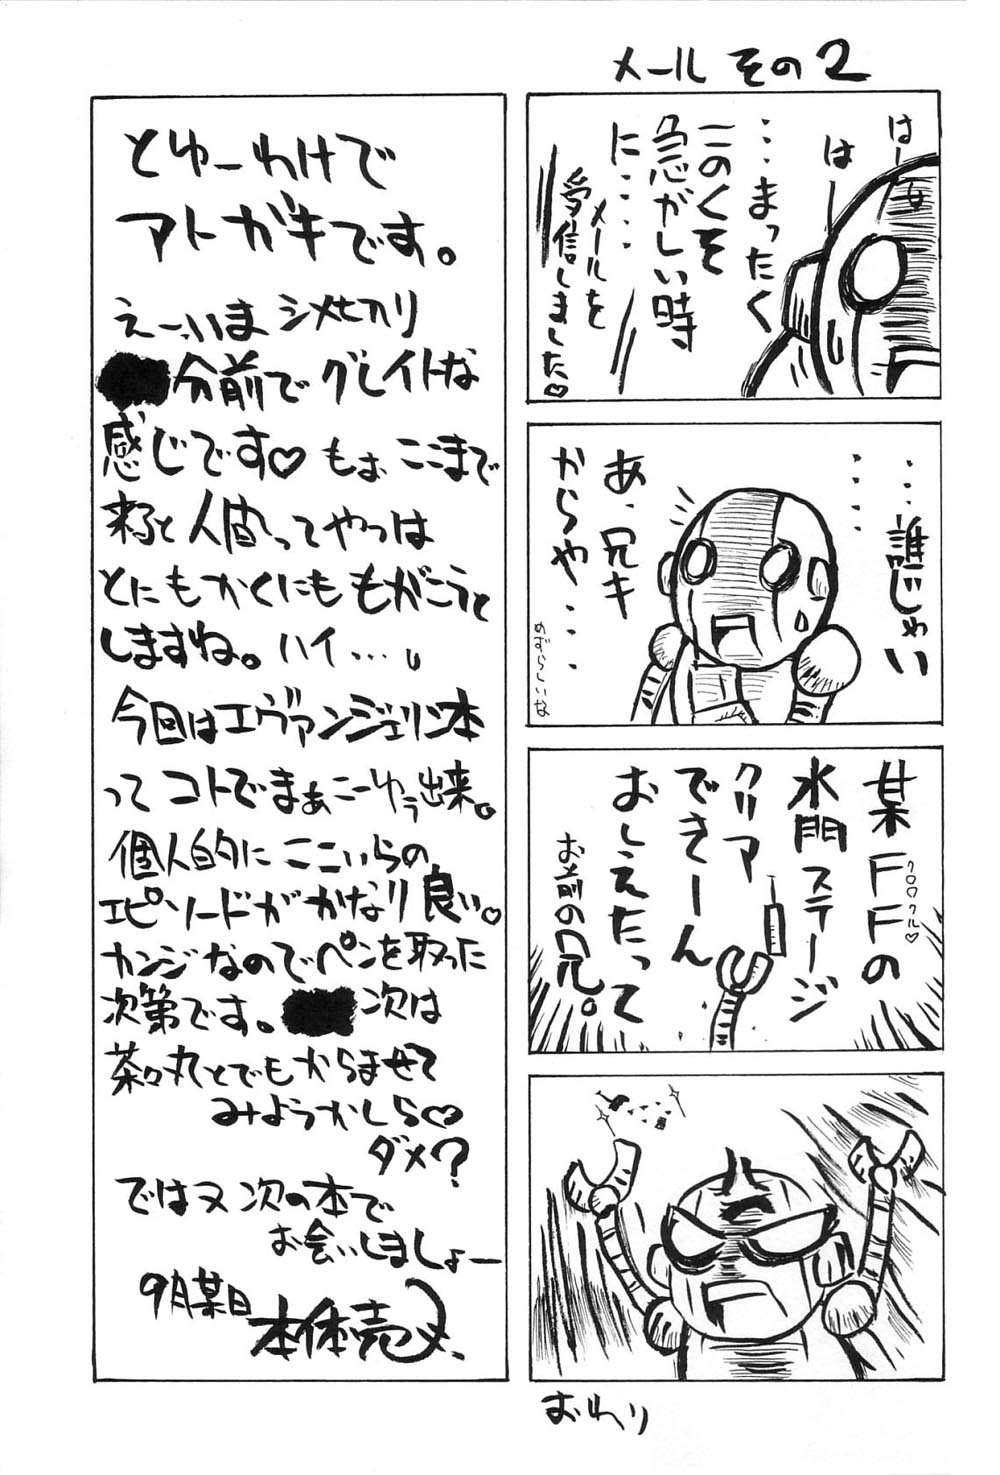 メール その2
はー
はー
…まったく
このくそ
急がしい時
に・・・・
メールを
受信しました♡
・・・・・・
誰じゃい
あ、兄キ
からや・・・・
めずらしいな
某FFの
クロロクル♡
水門ステージ
クリア
できーん
おしえたって
お前の兄。
おわり
とゆーわけで
アトガキです。
えーっいま シメセカリ
分前で グレイトな
感じです♡ もぉ ここまで
来ると 人間ってやつは
とにもかくにも もがこうと
しますね。ハイ…。
今回はエヴァンジェリン本
って コトで まぁこーゆう出来。
個人的に ここいらの
エピソードが かなり 良い。
カンジなので ペンを取った
次第です。 次は
茶々丸とでも からませて
みようかしら♡
ダメ?
ではヌ 次の本で
お会いしましょー
9月某日
本体売